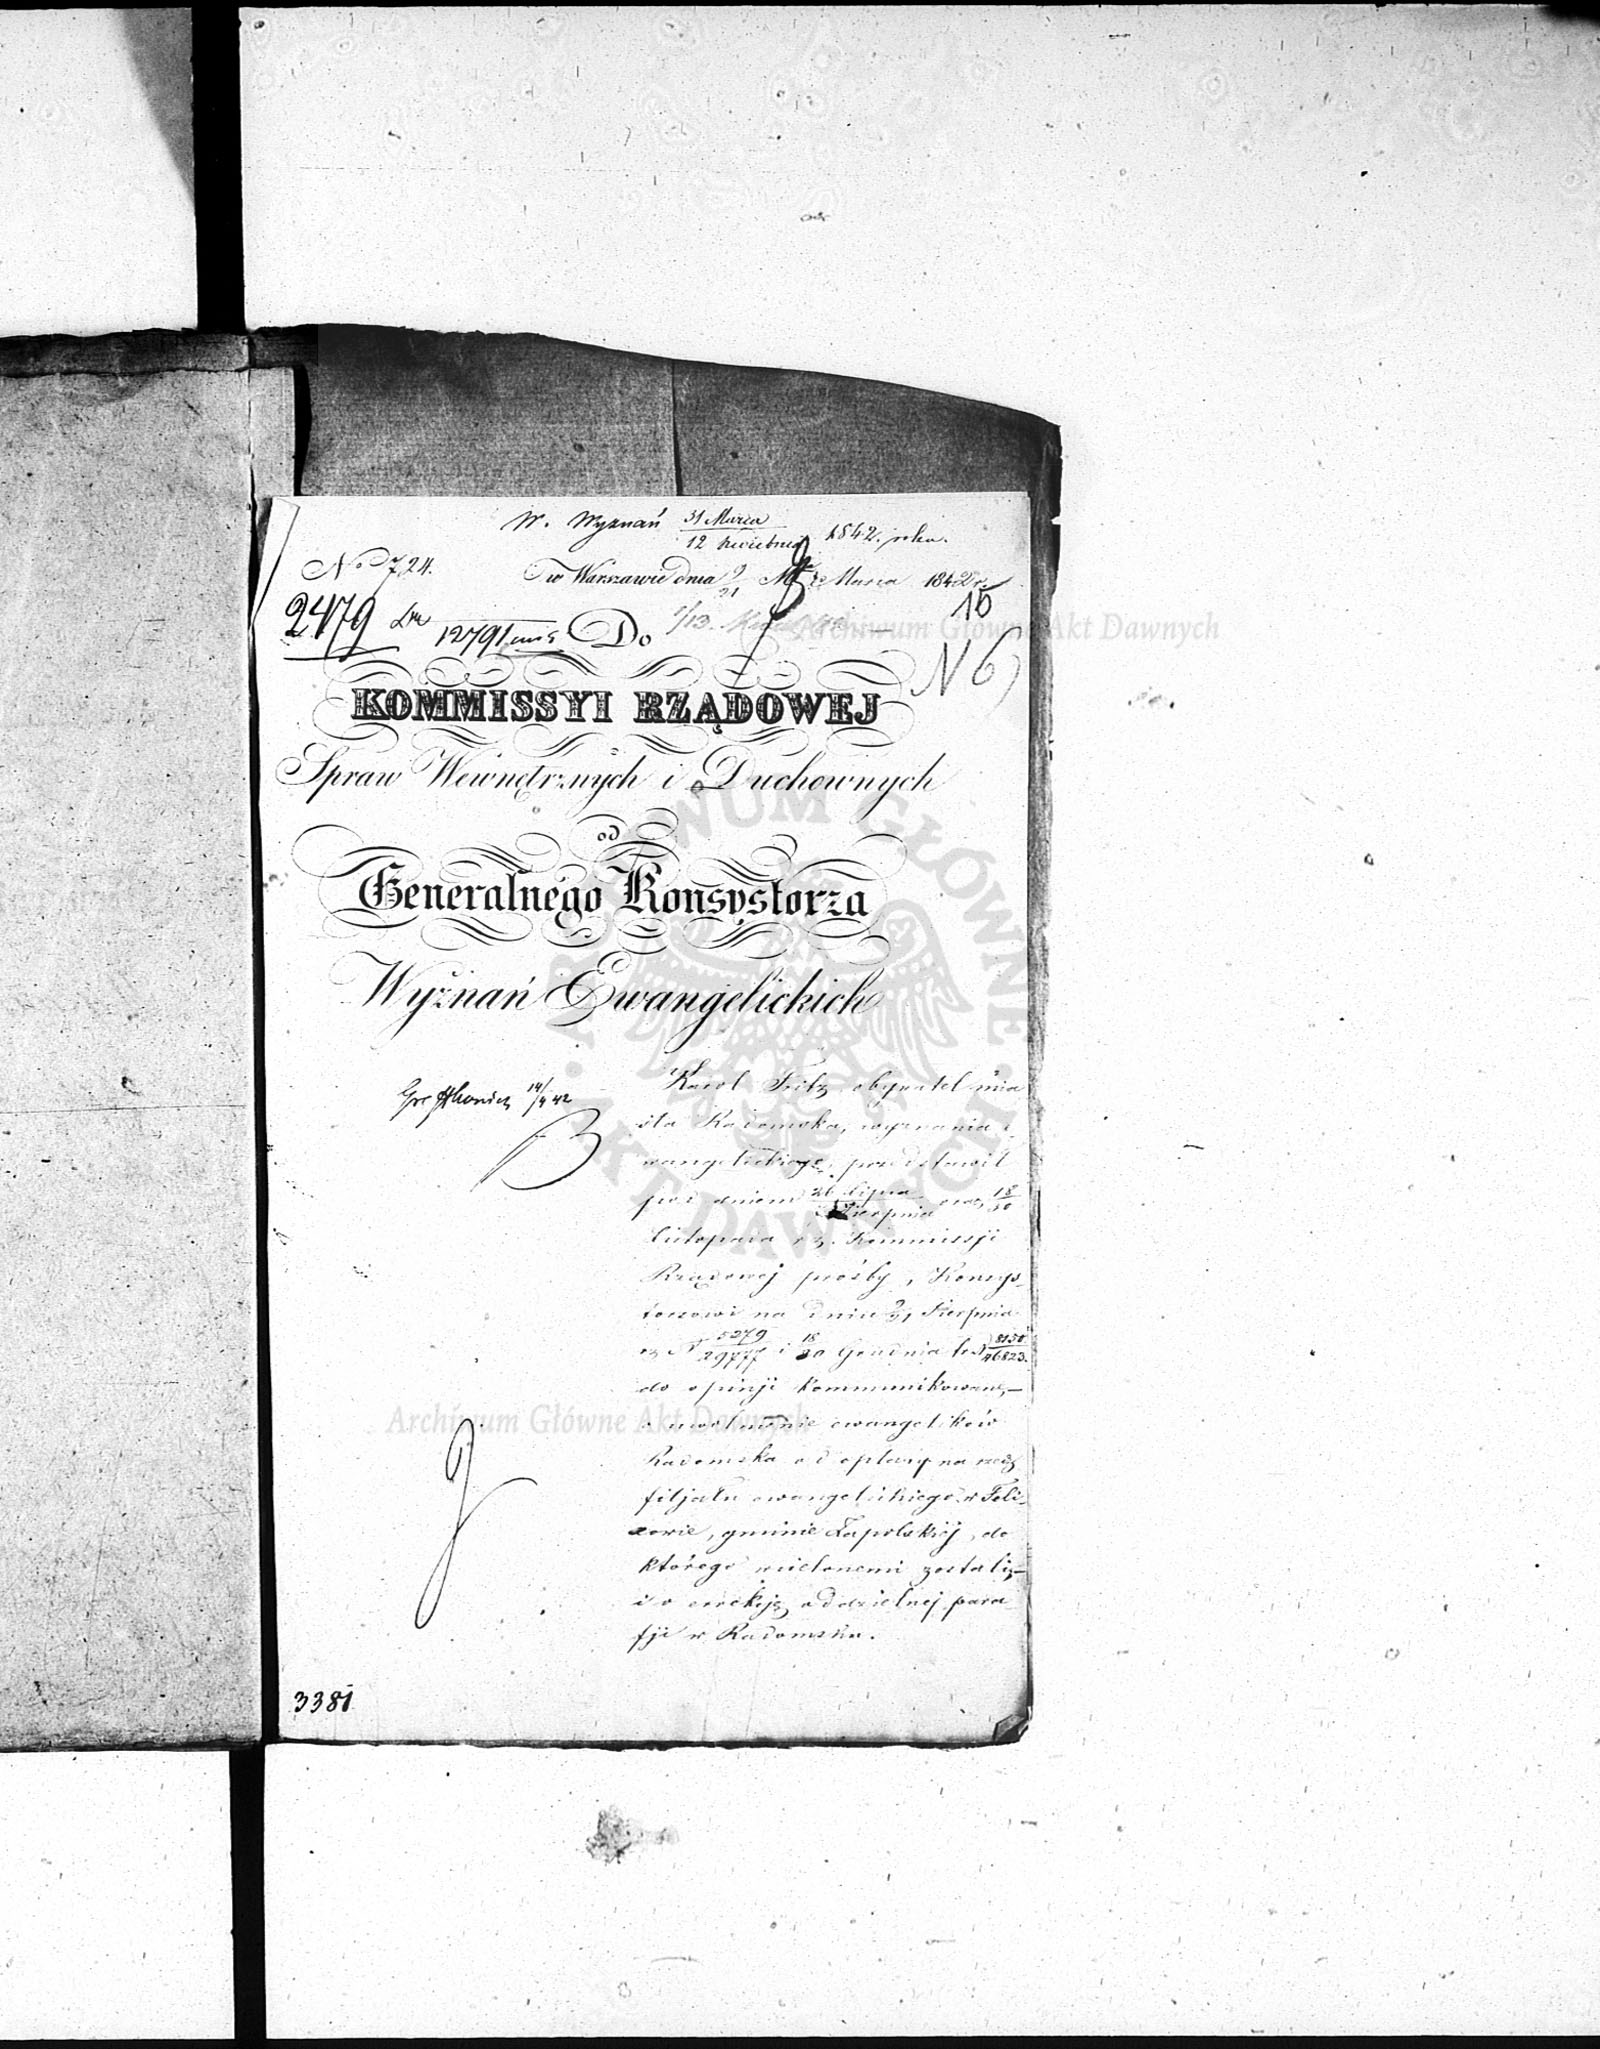 W. Wyznań 31 Marca / 12 Kwietnia 1842. roku.
No 724. w Warszawie dnia 9/21 Marca 1842 r.
15
2479 12791 Do 1/13.
N 6
KOMMISSYI RZĄDOWEJ
Spraw Wewnętrznych i Duchownych
od
Generalnego Konsystorza
Wyznań Ewangelickich
14/4 42
Karol Fritz obywatel mia
sta Radomska, wyznania e
wangelickiego, przedstawił
pod dniem 26 Lipca / Sierpnia oraz 18/30
Listopada r z. Kommissji
Rządowej prośby, Konsys-
torzowi na dniu 9/21 Sierpnia
rz N 5279/29777 i 18/30 Grudnia t r N 8150/46823.
do opinji kommunikowane,—
o uwolnienie ewangelików
Radomska od opłaty na rzecz
filjału ewangelickiego w Feli-
xowie, gminie Zapolskiej, do
którego wcielonemi zostali,—
i o erekcję oddzielnej para
fji w Radomsku.
3381
Archiwum Główne Akt Dawnych
Archiwum Główne Akt Dawnych
ARCHIWUM GŁÓWNE AKT DAWNYCH